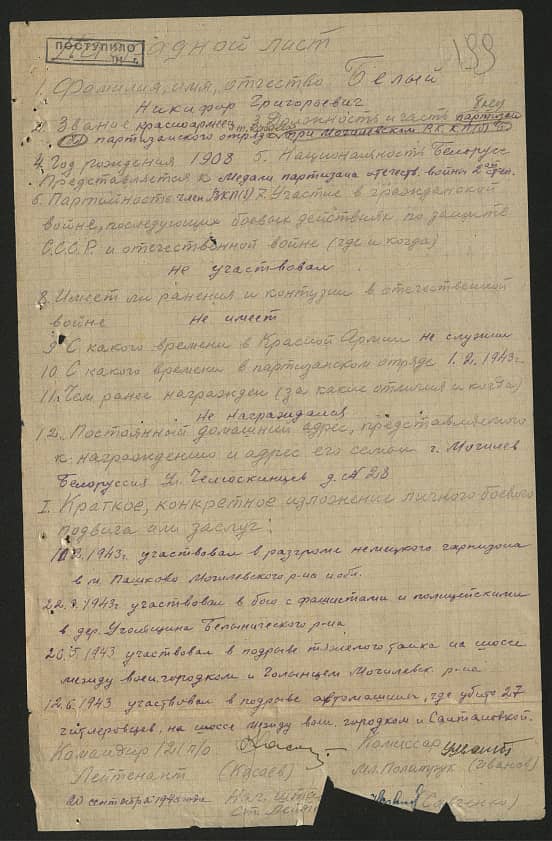 Наградной лист
ПОСТУПИЛО
199
1. Фамилия, имя, отчество Белый
Никифор Григорьевич
2. Звание красноармеец 3. Должность и часть партизан
партизанского отряда при Могилевском ВК КП(б)Б
4. Год рождения 1908 5. Национальность Белорус
Представляется к Медали партизана отечеств. войны 2ой степ.
6. Партийность член ВКП(б) 7. Участие в гражданской
войне, последующих боевых действиях по защите
С.С.С.Р. и отечественной войне (где и когда)
не участвовал
8. Имеет ли ранения и контузии в отечественной
войне не имеет
9. С какого времени в Красной Армии не служил
10. С какого времени в партизанском отряде 1.2.1943г.
11. Чем ранее награжден (за какие отличия и когда)
Не награждался
12. Постоянный домашний адрес, представляемого
к награждению и адрес его семьи г. Могилев
Белоруссия Ул. Челюскинцев д. № 28
I. Краткое, конкретное изложение личного боевого
подвига или заслуг:
2.1943г. участвовал в разгроме немецкого гарнизона
в м. Пашково Могилевского р-на и обл.
1943г. участвовал в бою с фашистами и полицейскими
в дер. Угольщина Белыничского р-на
20.5.1943 участвовал в подрыве тяжелого танка на шоссе
между воен. городком и Голынцем Могилевск. р-на
12.6.1943 участвовал в подрыве автомашины, где убито 27
гитлеровцев, на шоссе между воен. городком и Салтановкой.
Командир 121 п/о Комиссар
Лейтенант (Касаев) Мл. Политрук (Иванов)
20 сентября 1943 года Нач. шта
Ст. Лейт